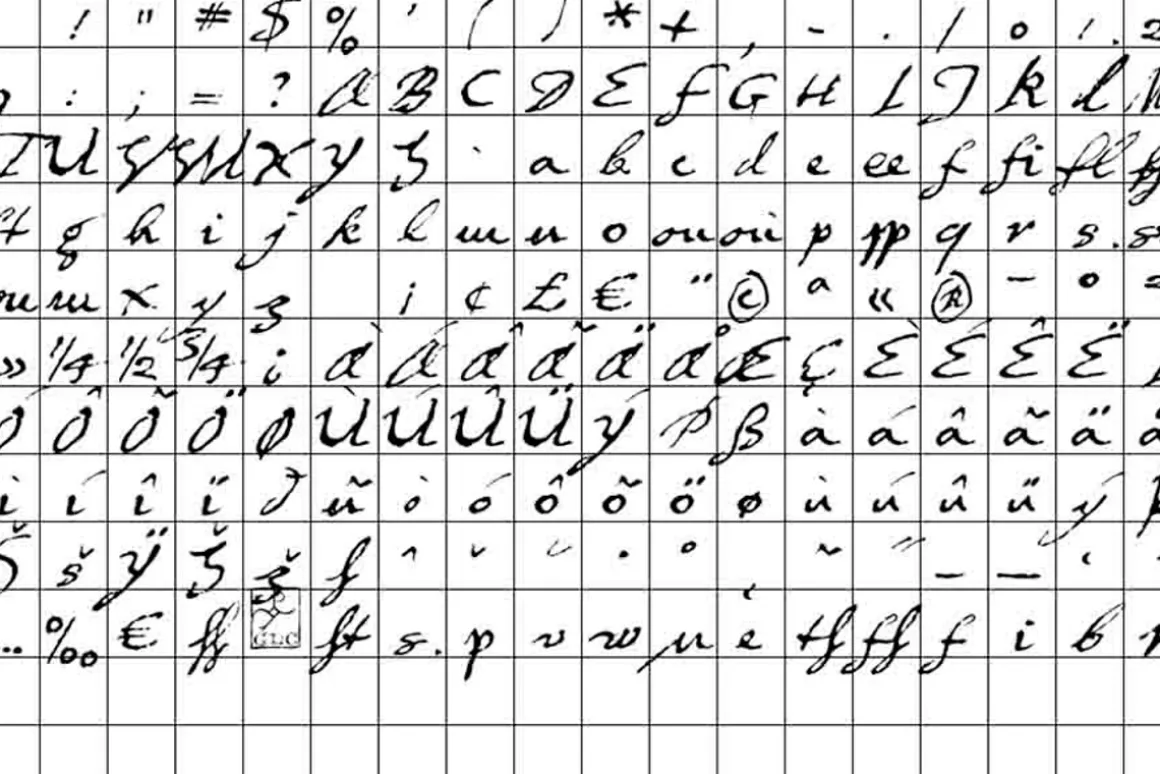 ! " # $ % ' ( ) * + , - . / 0 1. 2
: ; = ? A B C D E F G H I J K L M
T U V W X Y Z ` a b c d e ee f fi fl
g h i j k l m n o ou où p pp q r s.
w x y z ¡ ¢ £ € ¨ © ª « ® ¯ °
» 1/4 1/2 3/4 ¿ À Á Â Ã Ä Å Æ Ç È É Ê Ë
Ó Ô Õ Ö Ø Ù Ú Û Ü Ý Þ ß à á â ã ä å
ì í î ï ð ñ ò ó ô õ ö ø ù ú û ü ý þ
Š š Ÿ Ž ž ƒ ˆ ˇ ˘ ˙ ˚ ˛ ˜ ˝ – — ‘
… ‰ € ff st s. p v w µ é th ff f i b